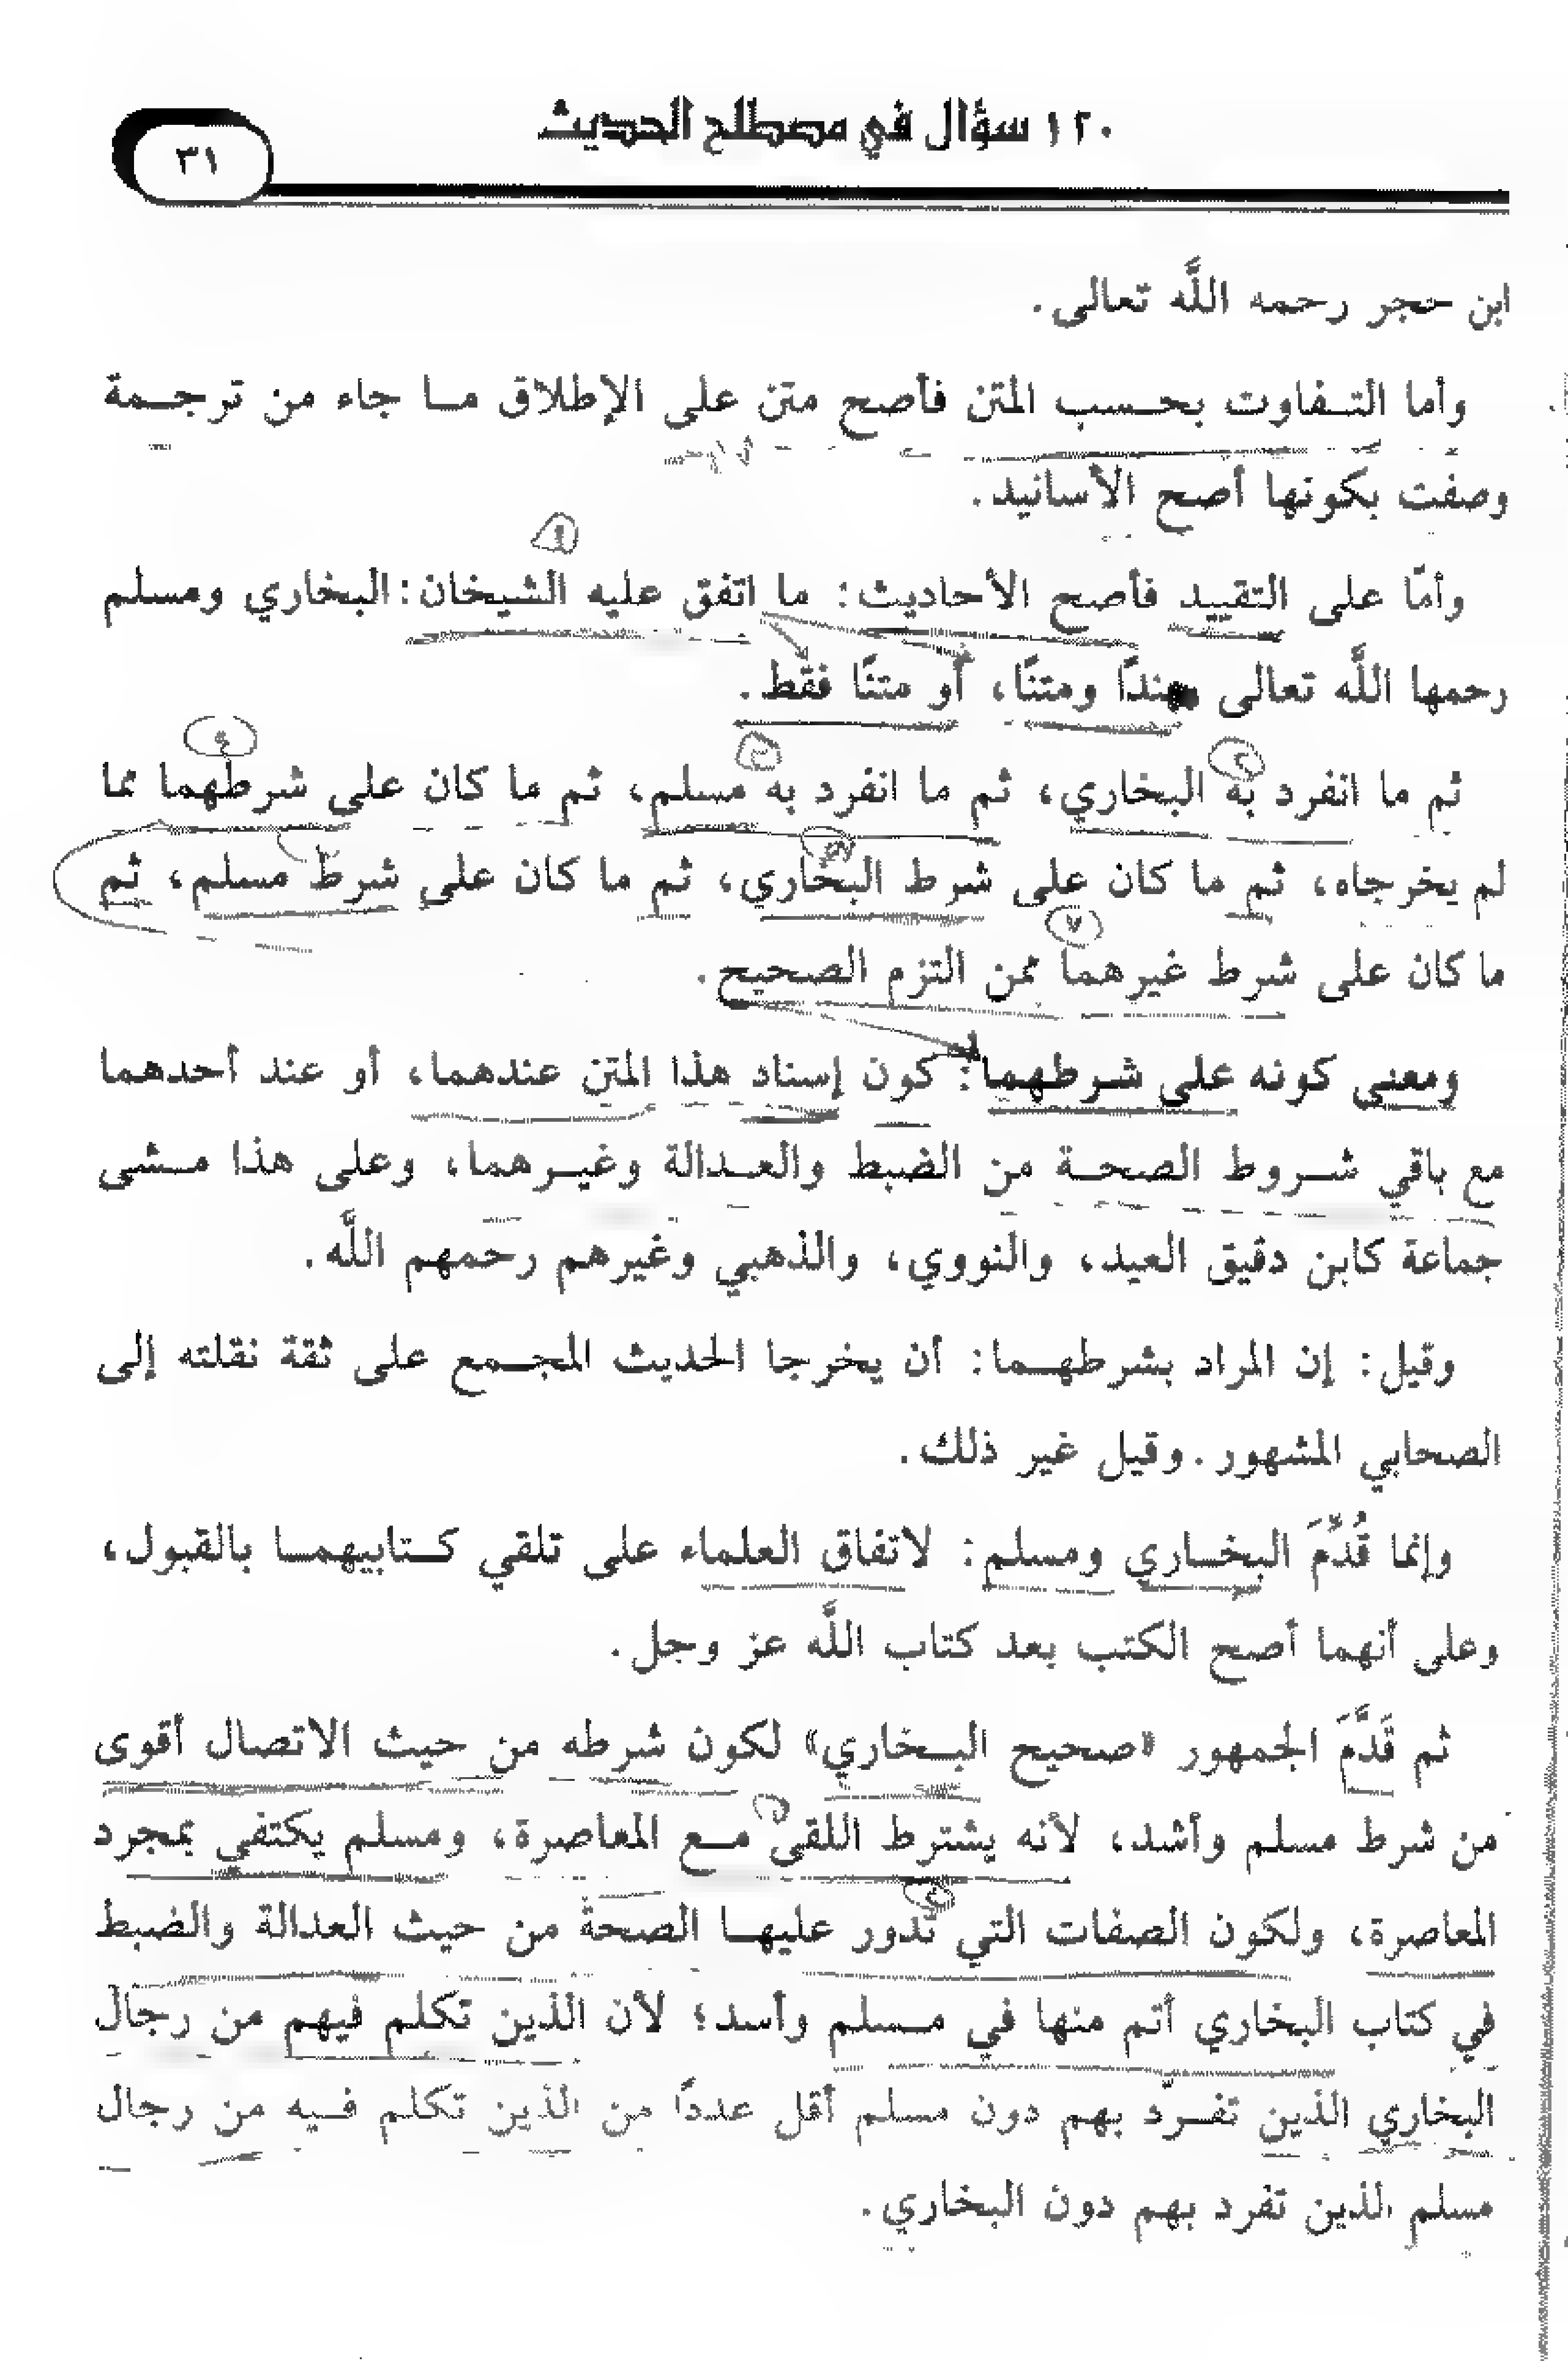 ١٢٠ سؤال في مصطلح الحديث
٣١
ابن حجر رحمه اللَّه تعالى.
وأما التفاوت بحسب المتن فأصح متن على الإطلاق ما جاء من ترجمة
وصفت بكونها أصح الأسانيد.
وأمّا على التقييد فأصح الأحاديث: ما اتفق عليه الشيخان: البخاري ومسلم
رحمها اللَّه تعالى سندًا ومتنًا، أو متنًا فقط.
ثم ما انفرد به البخاري، ثم ما انفرد به مسلم، ثم ما كان على شرطهما مما
لم يخرجاه، ثم ما كان على شرط البخاري، ثم ما كان على شرط مسلم، ثم
ما كان على شرط غيرهما ممن التزم الصحيح.
ومعنى كونه على شرطهما: كون إسناد هذا المتن عندهما، أو عند أحدهما
مع باقي شروط الصحة من الضبط والعدالة وغيرهما، وعلى هذا مشى
جماعة كابن دقيق العيد، والنووي، والذهبي وغيرهم رحمهم اللَّه.
وقيل: إن المراد بشرطهما: أن يخرجا الحديث المجمع على ثقة نقلته إلى
الصحابي المشهور. وقيل غير ذلك.
وإنما قُدِّمَ البخاري ومسلم: لاتفاق العلماء على تلقي كتابيهما بالقبول،
وعلى أنهما أصح الكتب بعد كتاب اللَّه عز وجل.
ثم قَدَّمَ الجمهور «صحيح البخاري» لكون شرطه من حيث الاتصال أقوى
من شرط مسلم وأشد، لأنه يشترط اللقى مع المعاصرة، ومسلم يكتفي بمجرد
المعاصرة، ولكون الصفات التي تدور عليها الصحة من حيث العدالة والضبط
في كتاب البخاري أتم منها في مسلم وأسد؛ لأن الذين تكلم فيهم من رجال
البخاري الذين تفرّد بهم دون مسلم أقل عددًا من الذين تكلم فيه من رجال
مسلم الذين تفرد بهم دون البخاري.